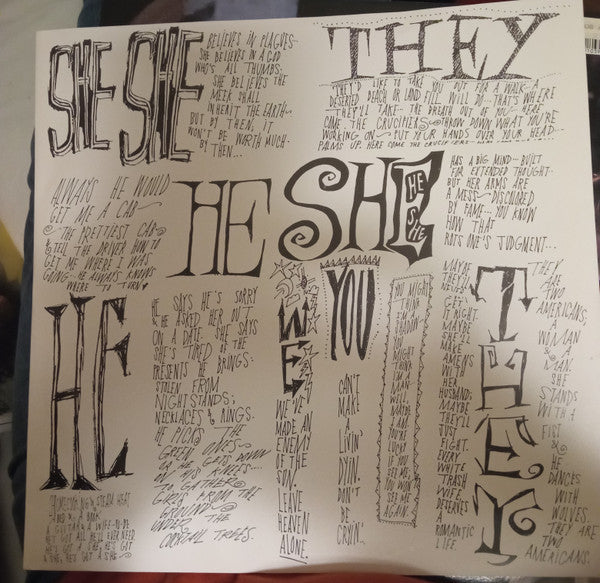 SHE SHE
BELIEVES IN PLAGUES-
SHE BELIEVES IN A GOD
WHO'S ALL THUMBS.
SHE BELIEVES THE
MEEK SHALL
INHERIT THE EARTH
BUT BY THEN, IT
WON'T BE WORTH MUCH.
BY THEN...
THEY
THEY'D LIKE TO TAKE YOU OUT FOR A WALK. A
DESERTED BEACH OR LAND FILL WILL DO-THAT'S WHERE
THEY'LL TAKE THE BREATH OUT OF YOU.
COME THE CRUCIFIERS THROW DOWN WHAT YOU'RE
WORKING ON PUT YOUR HANDS OVER YOUR HEAD
PALMS UP. HERE COME THE
ALWAYS HE WOULD
GET ME A CAB
THE PRETTIEST CAB
& TELL THE DRIVER HOW TO
GET ME WHERE I WAS
GOING. HE ALWAYS KNOWS
WHERE TO TURN
HE
SHE
HE
SHE
HAS A BIG MIND-BUILT
FOR EXTENDED THOUGHT.
BUT HER ARMS ARE
A MESS DISCOLORED
BY FAME... YOU KNOW
HOW THAT
ROTS ONE'S JUDGMENT...
HE
HE SAYS HE'S SORRY
& HE ASKED HER OUT
ON A DATE. SHE SAYS
SHE'S TIRED OF THE
PRESENTS HE BRINGS:
STOLEN FROM
NIGHTSTANDS;
NECKLACES & RINGS.
HE PICKS THE
GREEN ONES
OR HE GETS DOWN
ON HIS KNEES...
TO GATHER
FROM THE
GROUND
UNDER THE
TREES.
WE
WE'VE
MADE AN
ENEMY
OF THE
SON.
LEAVE
HEAVEN
ALONE.
YOU
CAN'T
MAKE
A
LIVIN'
DYIN'.
DON'T
BE
CRYIN'.
YOU MIGHT
THINK
I'M A
SHADOW
YOU
MIGHT
THINK
MAN
WELL
MAYBE
I AM
YOU'RE
LUCKY
IF YOU
LET ME
YOU WON'T
SEE ME
AGAIN.
MAYBE
THEY'LL
NEVER
GET
IT RIGHT
MAYBE
SHE'LL
MAKE
AMENS
WITH
HER
HUSBAND;
MAYBE
THEY'LL
JUST
FIGHT.
EVERY
WHITE
TRASH
WIFE
DESERVES
A
ROMANTIC
LIFE
THEY
THEY
ARE
TWO
AMERICANS,
A
WOMAN
&
A
MAN.
SHE
STANDS
WITH A
FIST
&
HE
DANCES
WITH
WOLVES.
THEY ARE
TWO
AMERICANS.
STEAM HEAT
AND A
GUITAR & A WIFE-N-BE
HE'S GOT ALL HE'LL EVER NEED
HE'S GOT A SHE, HE'S GOT
A SHE, HE'S GOT A SHE